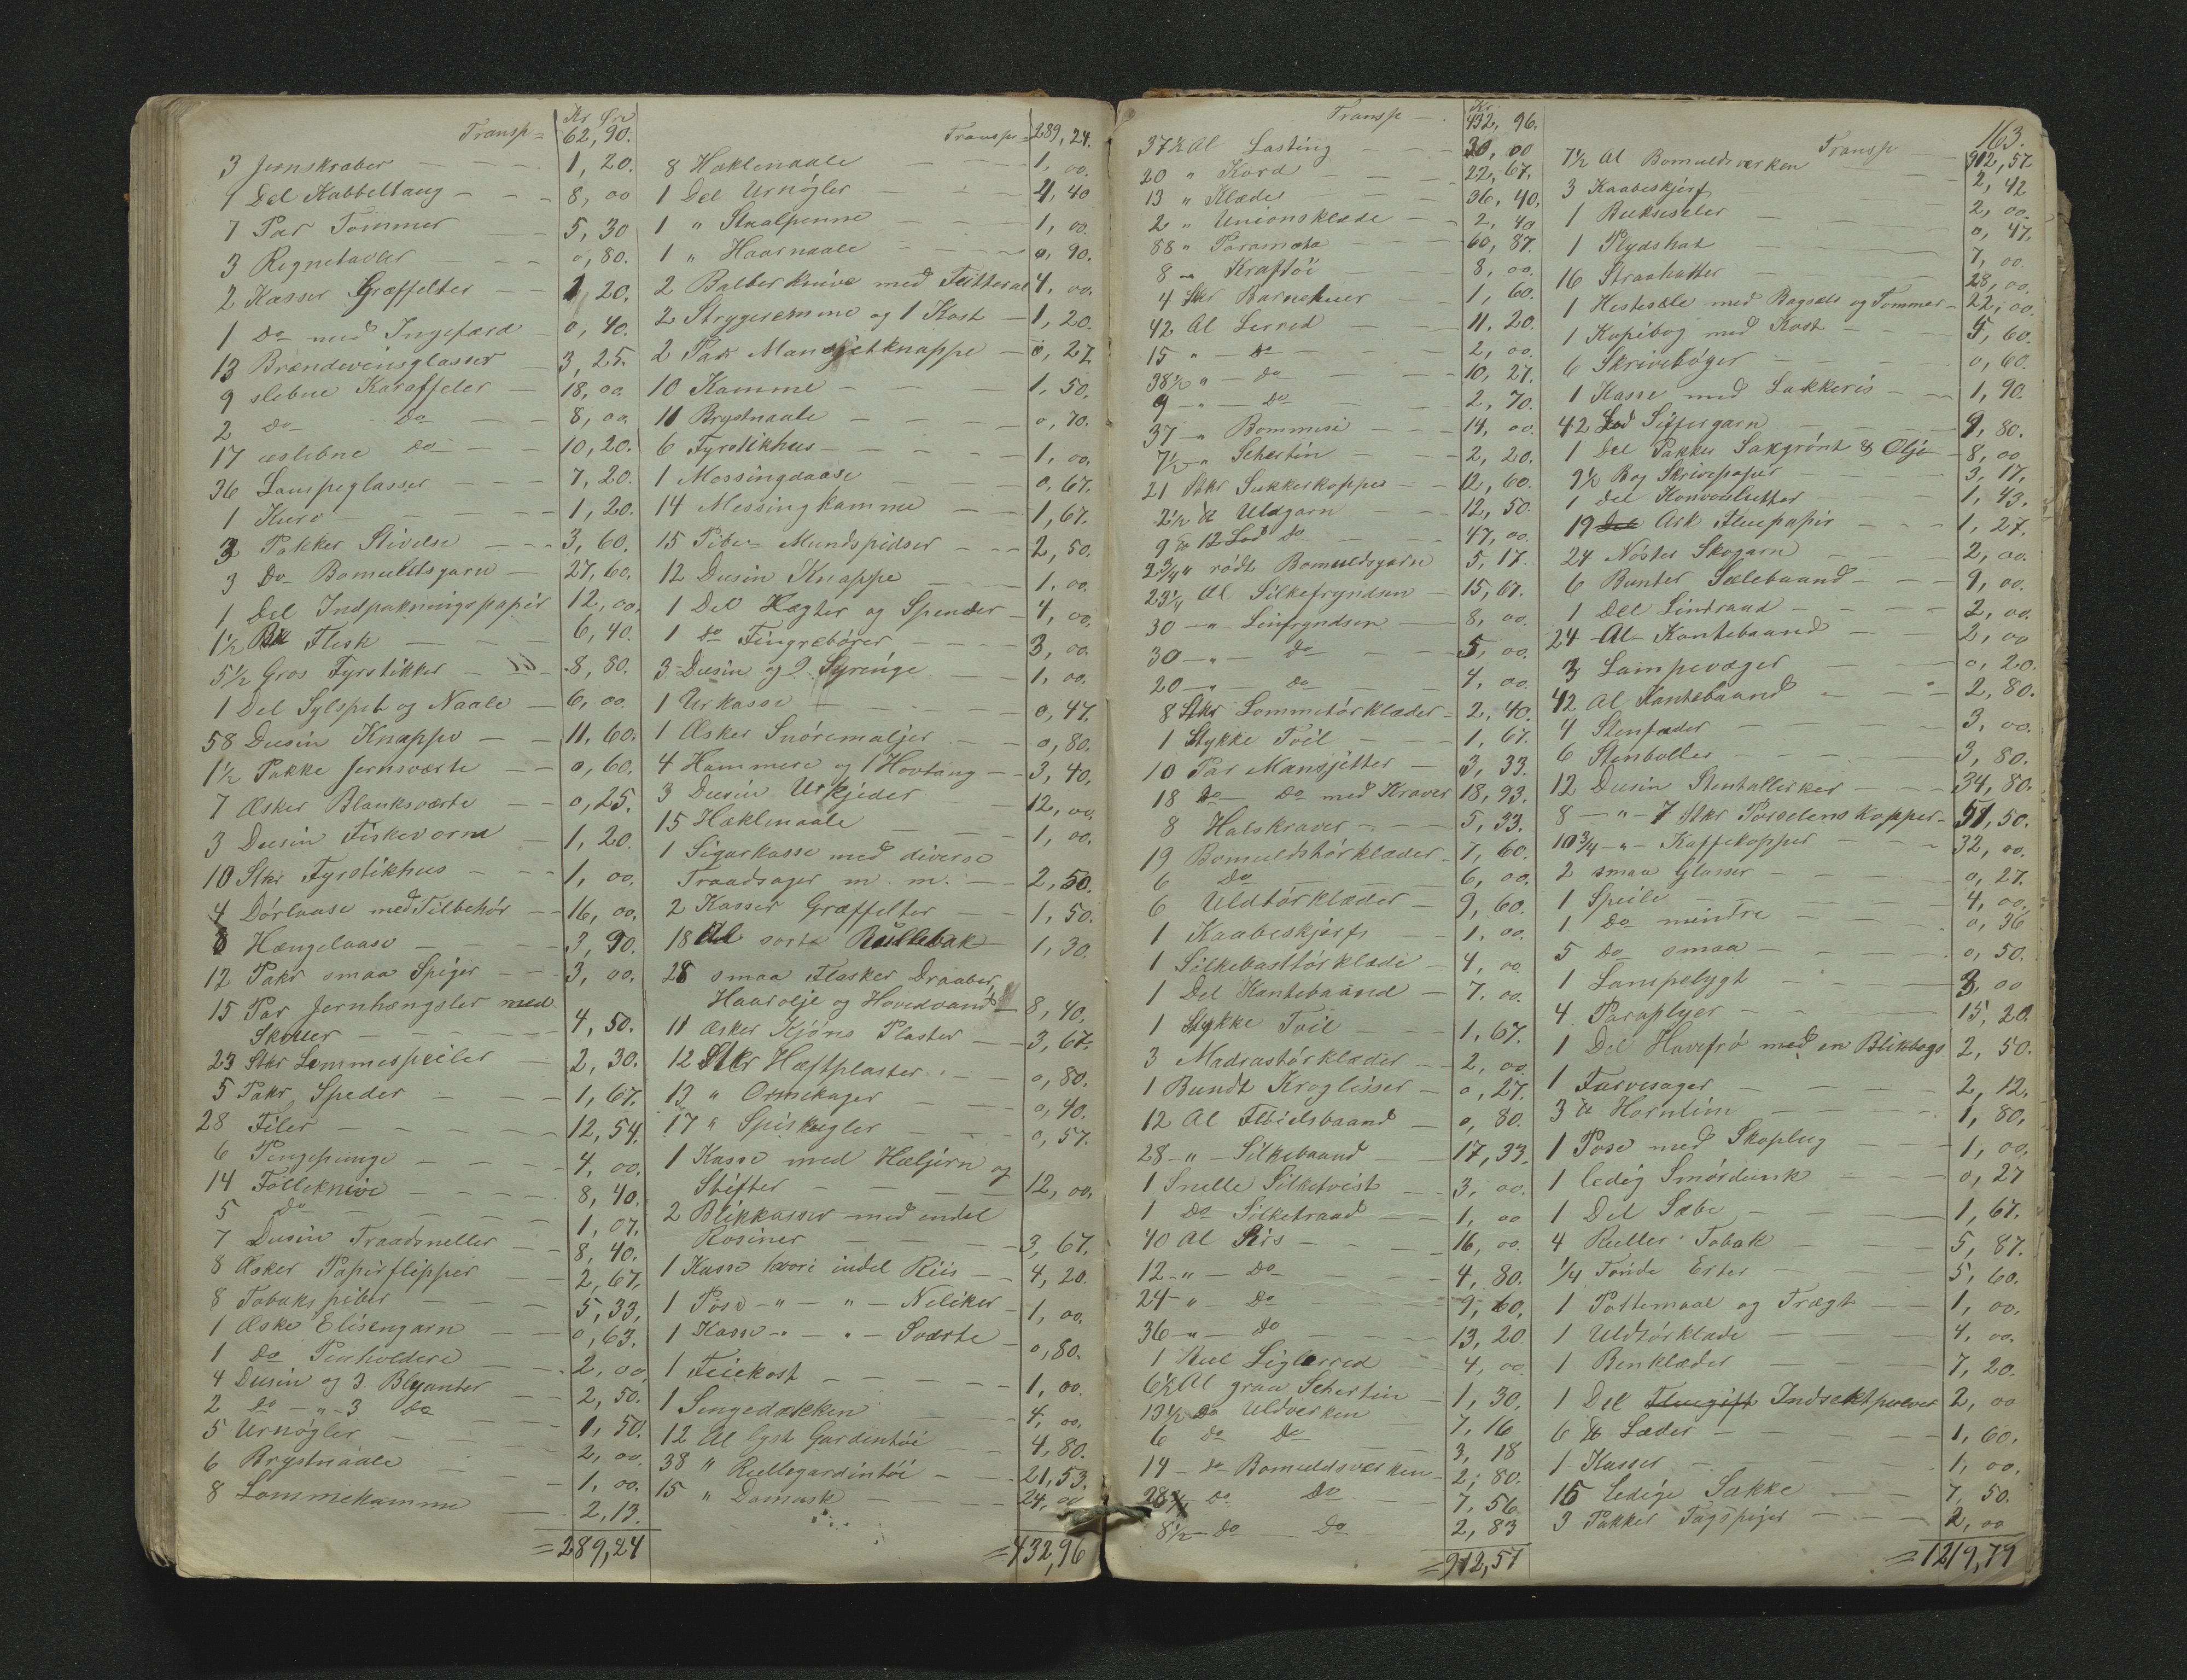 Kr Øre
Transp = 62,90.
3 Jernskraber — 1,20.
1 Del Kabbeltaug — 8,00
7 Par Tømmer 5,30
3 Regnetavler — 0,80.
2 Kasser Græffelter — 1,20.
1 Do med Ingefærd — 0,40.
13 Brændevinsglasser 3,25.
9 slebne Karaffeler — 18,00
2 Do Do — 8,00
17 uslebne Do — 10,20.
36 Lampeglasser — 7,20.
1 Kurv — 1,20.
3 Pakker Stivelse — 3,60.
3 Do Bomuldsgarn — 27,60.
1 Del Indpakningspapir 12,00.
1½ Flesk — 6,40.
5½ Gros Fyrstikker — 8,80.
1 Del Sylspet og Naale — 6,00.
58 Dusin Knappe — 11,60.
1½ Pakke Jernsværte — 0,60.
7 Æsker Blanksværte — 0,25.
3 Dusin Fiskevorm — 1,20.
10 Stkr Fyrstikhus — 1,00.
4 Dørlaase med Tilbehør — 16,00.
8 Hængelaase — 3,90.
12 Pakr smaa Spiger — 3,00.
15 Par Jernhængsler med
Skruer — 4,50.
23 Stkr Lommespeiler — 2,30.
5 Pakr Speder — 1,67.
28 Filer — 12,54.
6 Pengepunge — 4,00.
14 Følleknive — 8,40.
5 Do — 1,07.
7 Dusin Traadsneller — 8,40.
8 Æsker Papirflipper — 2,67.
8 Tobakspiber — 5,33,
1 Æske Elisengarn — 0,63.
1 Do Penholdere — 2,00,
4 Dusin og 3 Blyanter — 2,50.
2 Do - " - 3 Do 1,50.
5 Urnøgler — 2,00.
6 Brystnaale — 1,00.
8 Lommekamme — 2,13.
=289,24
Transp = 289,24.
8 Hæklenaale — 1,00.
1 Del Urnøgler — 4,40
1 " Staalpenne — 1,00.
1 " Haarnaale — 0,90.
2 Balberknive med Futteral 4,00.
2 Strygeremme og 1 Kost — 1,20.
2 Par Mansjetknappe — 0,27.
10 Kamme — 1,50.
11 Brystnaale — 0,70.
6 Fyrstikhus — 1,00.
1 Messingdaase — 0,67.
14 Messingkamme — 1,67.
15 Pibe-Mundspidser — 2,50.
12 Dusin Knappe — 1,00.
1 Del Hægter og Spender — 4,00,
1 Do Fingrebører — 3,00.
3 Dusin og 2 Syringe — 1,00.
1 Urkasse — 0,47.
1 Æsker Snøremaljer — 0,80.
4 Hammere og 1 Hovtang — 3,40.
3 Dusin Urkjeder — 12,00.
15 Hæklenaale — 1,00.
1 Sigarkasse med diverse
Traadsager m. m. — 2,50.
2 Kasser Græffelter — 1,50.
18 Al sorte Rullebak 1,30.
28 smaa Flasker Draaber,
Haarolje og Hovedvand 8,40.
11 Æsker Kjøns Plaster — 3,67.
12 Stkr Hæftplaster — 0,80.
13 " Ormekager — 0,40.
17 " Spiskugler — 0,57.
1 Kasse med Hæljern og
Stifter — 12,00,
2 Blikkasser med endel
Rosiner — 3,67.
1 Kasse hvori endel Riis — 4,20.
1 Pose - " - " - Neliker — 1,00.
1 Kasse - " - " - Sværte 0,80.
1 Feiekost — 1,00.
1 Sengedækken — 4,00.
12 Al lyst Gardentøi — 4,80.
38 " Rullegardintøi — 21,53.
15 " Damask — 24,00
=432,96
Kr.
Transp — 432,96.
37½ Al Lasting — 30,00
20 " Kord — 22,67.
13 " Klæde — 36,40,
2 " Unionsklæde — 2,40
88 " Paramata — 60,87.
8 " Kraftøi — 8,00.
4 Stkr Barnehuer — 1,60.
42 Al Lerred — 11,20.
15 " - Do — 2,00.
38½ " - Do — 10,27.
9 - " - Do — 2,70.
37 - " Bommesi — 14,00.
7½ - " Schertin — 2,20.
21 Stkr Sukkerkopper — 12,60.
2½ ℔ Uldgarn — 12,50.
9 ℔ 12 Lod Do — 47,00.
2¾ " rødt Bomuldsgarn 5,17.
23¼ Al Silkefryndser — 15,67.
30 - " Linfryndser — 8,00.
30 - " - Do — 5,00.
20 - " - Do — 4,00.
8 Stkr Lommetørklæder — 2,40.
1 Stykke Tvil — 1,67.
10 Par Mansjetter — 3,33.
18 Do Do med Kraver 18,93.
8 Halskraver — 5,33.
19 Bomuldstørklæder — 7,60.
6 Do — 6,00.
6 Uldtørklæder — 9,60.
1 Kaabeskjerf — 1,00.
1 Silkebasttørklæde — 4,00.
1 Del Kantebaand — 7.00.
1 Stykke Tvil — 1,67.
3 Madrastørklæder — 2,00.
1 Bundt Kroglisser — 0,27.
12 Al Fløielsbaand — 0,80.
28 - " - Silkebaand — 17,33.
1 Snelle Silketvist — 3,00.
1 Do Silketraad — 1,00
40 Al Sirs — 16,00.
12 - " - Do — 4,80.
24 " Do — 9,60.
36 - " - Do — 13,20
1 Rul Seglerred — 4,00
6½ Al graa Schertin — 1,30.
13½ Do Uldverken 7,16
6 Do Do — 3,18
14 - Do Bomuldsverken — 2,80.
28 Do Do 7,56
8½ - Do Do 2,83
=912,57
163.
Transp — 912,57.
7½ Al Bomuldsverken — 2,42
3 Kaabeskjerf — 2,00.
1 Bukseseler — 0,47.
1 Flydshat — 7,00.
16 Straahatter — 28,00.
1 Hestesæle med Bagsele og Tommer — 22,00.
1 Kopibog med Kost — 5,60.
6 Skrivebøger — 0,60.
1 Kasse med Lakkeris — 1,90.
42 Lod Siffergarn — 9,80.
1 Del Pakker Sakgrønt & Olje — 8,00
9½ Bog Skrivepapir — 3,17.
1 Del Konvolutter — 1,43.
19 Del Ark Fluepapir — 1,27.
24 Nøster Skogarn — 2,00.
6 Bunter Sælebaand — 9,00.
1 Del Lintraad — 2,00.
24 - Al - Kantebaand — 2,00
3 Lampevæger — 0,20.
42 Al Kantebaand — 2,80.
4 Stenfader — 3,00.
6 Stenboller — 3,80.
12 Dusin Stentallerker — 34,80.
8 - " - 7 Stkr Porselenskopper — 51,50.
10¾ - " - Kaffekopper — 32,00.
2 smaa Glasser — 0,27.
1 Speile — 4,00.
1 Do mindre — 0,36
5 Do smaa — 0,50.
1 Lampelygt — 3,00
4 Paraplyer — 15,20
1 Del Havefrø med en Blikbogs 2,50.
1 Farvesager — 2,12.
3 ℔ Hornlim — 1,80,
1 Pose med Skoplug — 1,00.
1 ledig Smørdunk — 0,27
1 Del Sæbe — 1,67.
4 Ruller Tobak — 5,87.
¼ Tønde Erter — 5,60.
1 Pottemaal og Tragt — 1,00,
1 Uldtørklæde — 4,00.
1 Benklæder — 7,20.
1 Del Fluegift Indsektpulver 2,00
6 ℔ Læder — 1,60,
1 Kasser — 1,00,
15 Ledige Sække — 7,50.
3 Pakker Tagspiger — 2,00
=1219,79